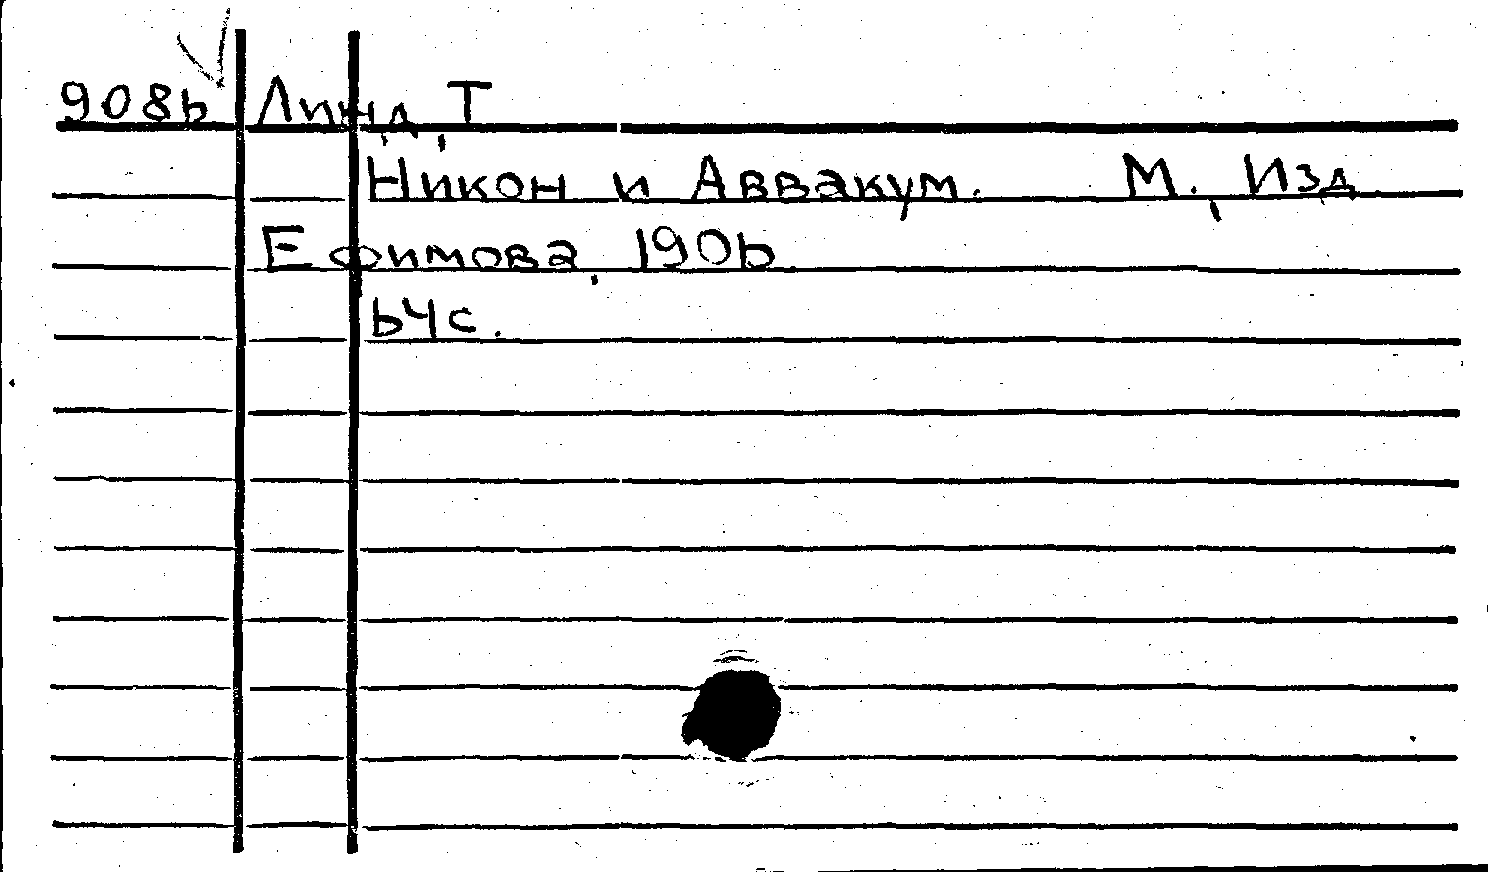 9086 Линд, Т
Никон и Аввакум. М., Изд
Ефимова, 1906
64с.